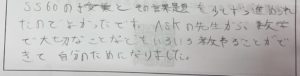 SS60の授業とその結果をもとずつ進められ
たのでよかったです。ASKの先生から、数学
で大切なことなどもいろいろ教わることがで
きて自分のためになりました。